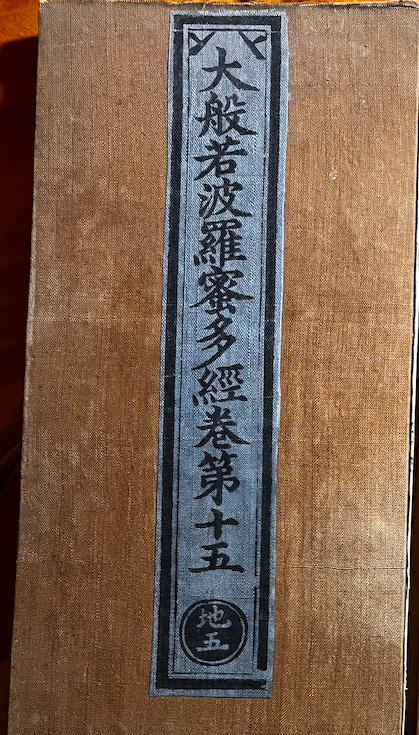 大般若波羅蜜多經卷第十五
地五